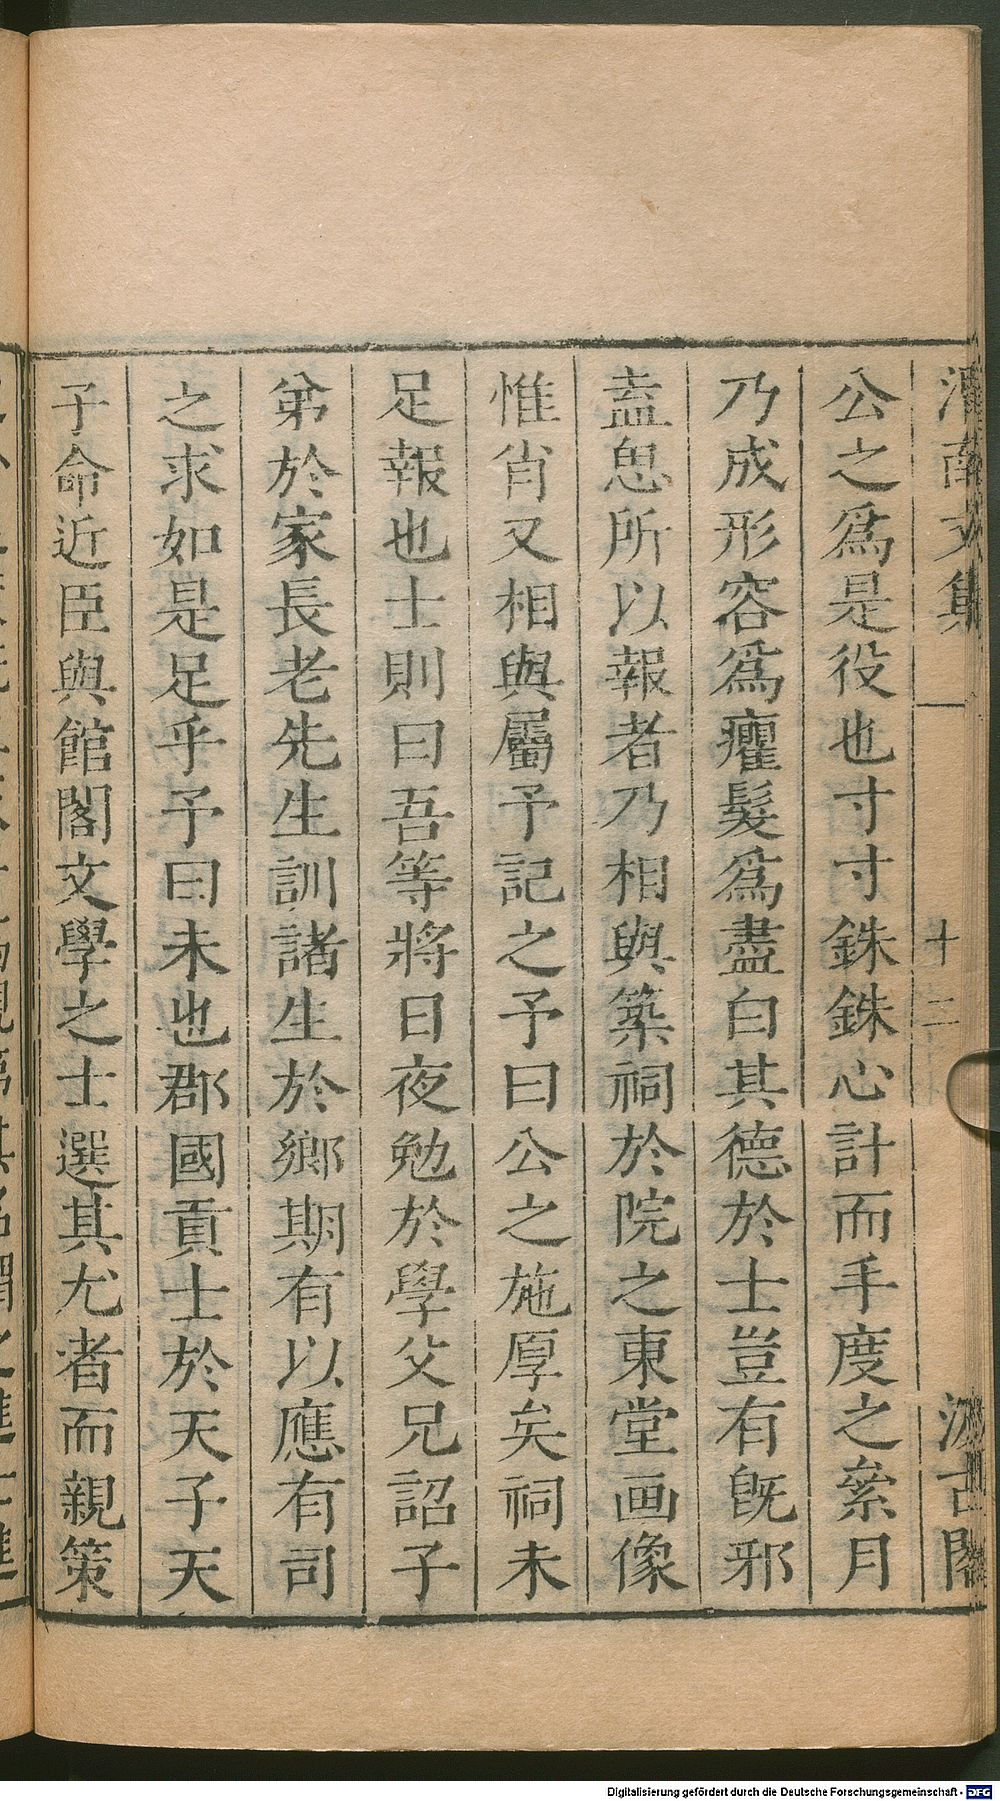 渭南文集
十二
汲古閣
公之爲是役也寸寸銖銖心計而手度之絫月
乃成形容爲癯髮爲盡白其德於士豈有旣邪
盍思所以報者乃相與築祠於院之東堂画像
惟肖又相與屬予記之予曰公之施厚矣祠未
足報也士則曰吾等將日夜勉於學父兄詔子
弟於家長老先生訓諸生於鄉期有以應有司
之求如是足乎予曰未也郡國貢士於天子天
子命近臣與館閣文學之士選其尤者而親策
Digitalisierung gefördert durch die Deutsche Forschungsgemeinschaft - DFG